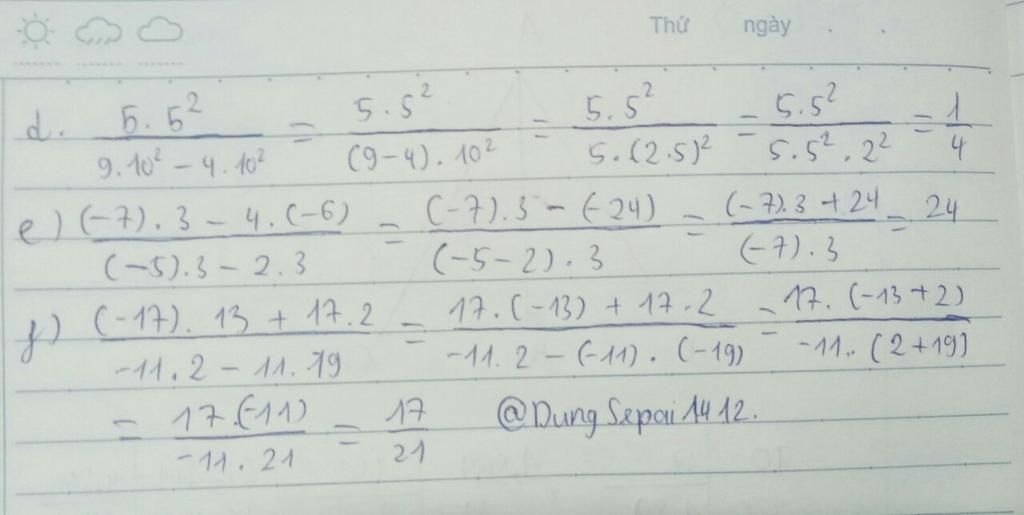 Thứ ngày . .
d. (5.5²)/(9.10² - 4.10²) = (5.5²)/((9-4).10²) = (5.5²)/(5.(2.5)²) = (5.5²)/(5.5².2²) = 1/4
e) ((-7).3 - 4.(-6))/((-5).3 - 2.3) = ((-7).3 - (-24))/((-5-2).3) = ((-7).3 + 24)/((-7).3) = 24
f) ((-17).13 + 17.2)/(-11.2 - 11.19) = (17.(-13) + 17.2)/(-11.2 - (-11).(-19)) = (17.(-13+2))/(-11..(2+19))
= (17.(-11))/(-11.21) = 17/21 @DungSepai1412.